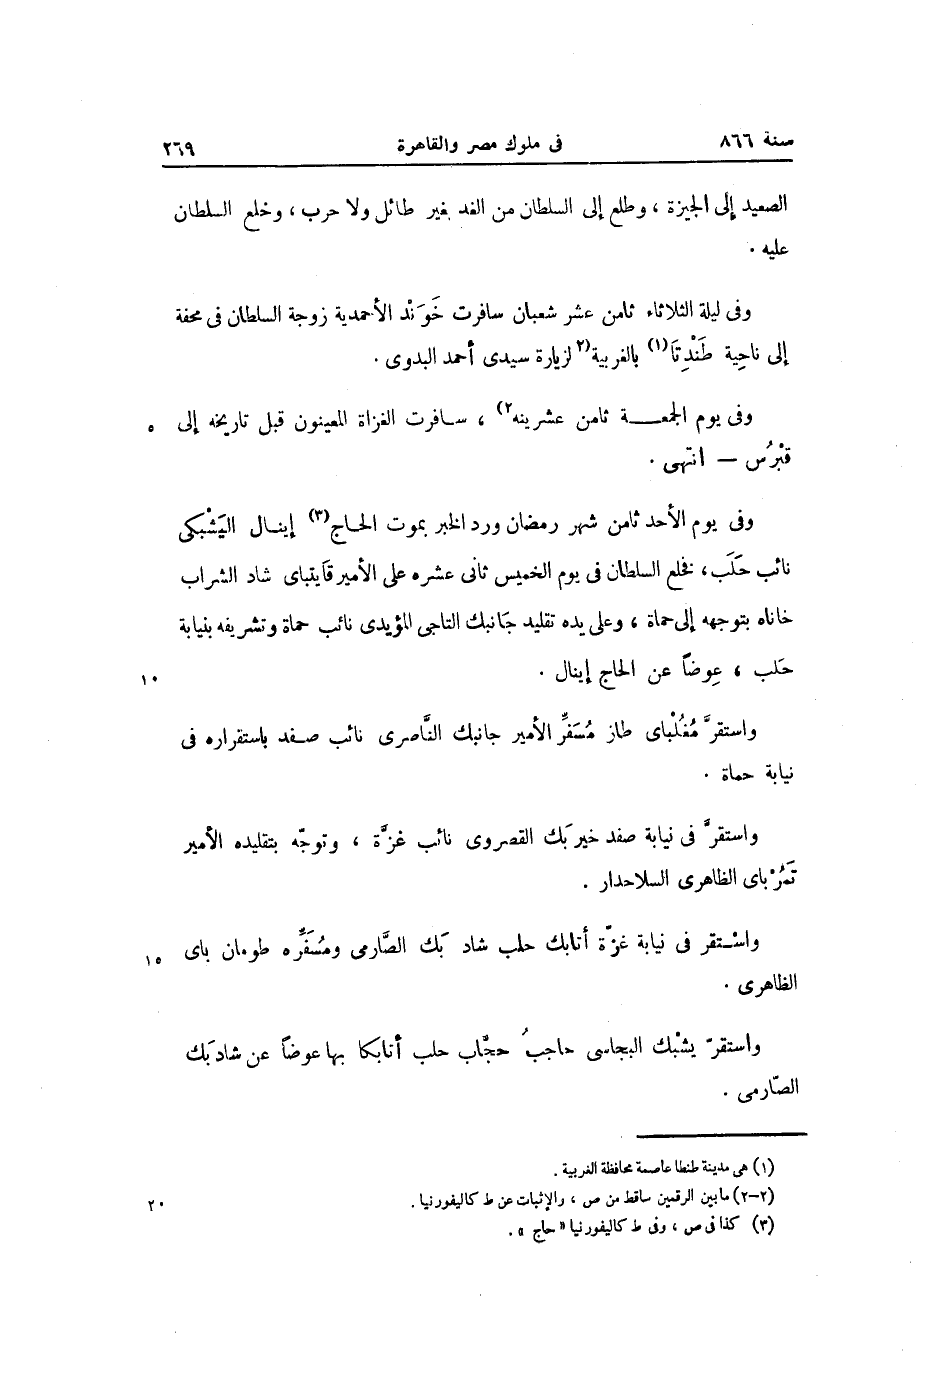 سنة ٨٦٦ فى ملوك مصر والقاهرة ٢٦٩
الصعيد إلى الجيزة ، وطلع إلى السلطان من الغد بغير طائل ولا حرب ، وخلع السلطان
عليه .
وفى ليلة الثلاثاء ثامن عشر شعبان سافرت خَوَنْد الأحمدية زوجة السلطان فى محفة
إلى ناحِية طَنْدِتَا(١) بالغربية(٢ لزيارة سيدى أحمد البدوى .
وفى يوم الجمعـــة ثامن عشرينه٢) ، سافرت الغزاة المعينون قبل تاريخه إلى ٥
قبْرُس — انتهى .
وفى يوم الأحد ثامن شهر رمضان ورد الخبر بموت الحاج(٣) إينال اليَشْبكى
نائب حَلَب ، فخلع السلطان فى يوم الخميس ثانى عشره على الأمير قَايتباى شاد الشراب
خاناه بتوجهه إلى حماة ، وعلى يده تقليد جَانبك التاجى المؤيدى نائب حماة وتشريفه بنيابة
حَلب ، عِوضاً عن الحاج إينال . ١٠
واستقرَّ مُغُلْباى طاز مُسَفِّر الأمير جانبك النَّاصرى نائب صفد باستقراره فى
نيابة حماة .
واستقرَّ فى نيابة صفد خيربَك القصروى نائب غزَّة ، وتوجّه بتقليده الأمير
تَمُرْباى الظاهرى السلاحدار .
واسْتقر فى نيابة غزّة أتابك حلب شاد بَك الصَّارمى ومُسَفِّره طومان باى ١٥
الظاهرى .
واستقرّ يشْبك البجاسى حاجبُ حجَّاب حلب أتابكا بها عوضاً عن شادبَك
الصّارمى .
(١) هى مدينة طنطا عاصمة محافظة الغربية .
(٢-٢) مابين الرقمين ساقط من ص ، والإثبات عن ط كاليفورنيا . ٢٠
(٣) كذا فى ص ، وفى ط كاليفورنيا « حاج » .